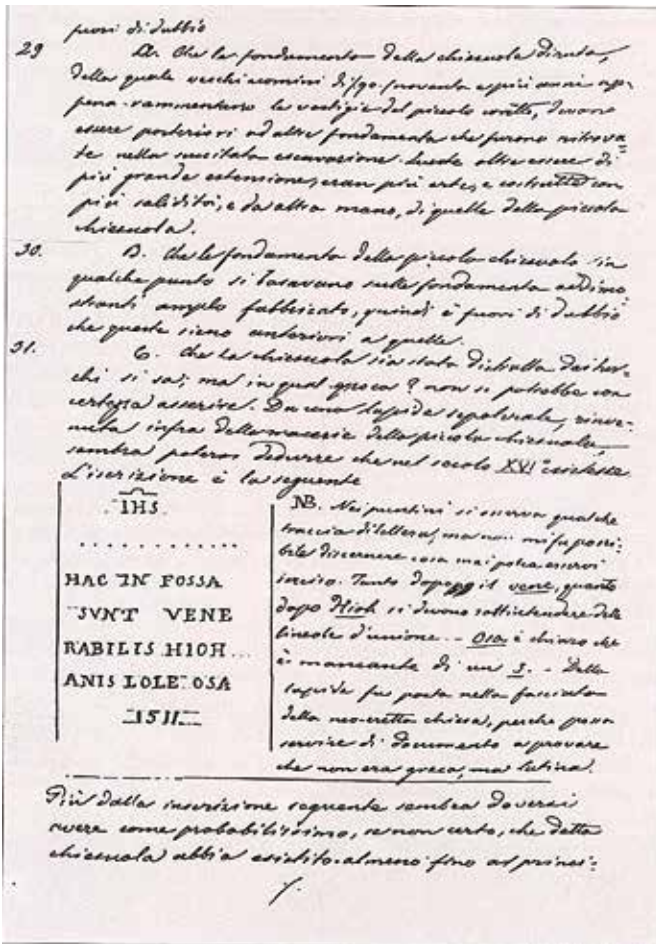 fuori di dubbio
29 A. Che le fondamenta della chiesuola diruta,
della quale vecchi uomini di 90 (novanta e più) anni ap-
pena rammentano le vestigie del piccolo coretto, devono
essere posteriori ad altre fondamenta che furono ritrova=
te nella succitata escavazione. Queste oltre essere di
più grande estensione, eran più erte, e costrutte con
più solidità, e da altra mano, di quelle della piccola
chiesuola.
30. B. Che le fondamenta della piccola chiesuola in
qualche punto si basavano sulle fondamenta addimo
stranti ampio fabbricato, quindi è fuori di dubbio
che queste sieno anteriori a quelle.
31. C. Che la chiesuola sia stata distrutta dai tur=
chi si sa; ma in qual epoca? non si potrebbe con
certezza asserire. Da una lapide sepolcrale, rinve=
nuta infra delle macerie della piccola chiesuola,
sembra potersi dedurre che nel secolo XVI esistesse.
L'iscrizione è la seguente
IHS.
. . . . . . . . . . . . .
HAC IN FOSSA
SVNT VENE
RABILIS HIOH ...
ANIS LOLE OSA
1511
NB. Nei puntini si osserva qualche
traccia di lettera, ma non mi fu possi:
bile discernere cosa mai potea esservi
inciso. Tanto dopo il vene, quanto
dopo Hioh si devono sottintendere delle
lineole d'unione. - Osa è chiaro che
è mancante di un s. - Detta
lapide fu posta nella facciata
della neo-eretta chiesa, perche possa
servire di documento a provare
che non era greca, ma latina.
Più dalla inscrizione seguente sembra doversi
avere come probabilissimo, se non certo, che detta
chiesuola abbia esistito almeno fino al princi: